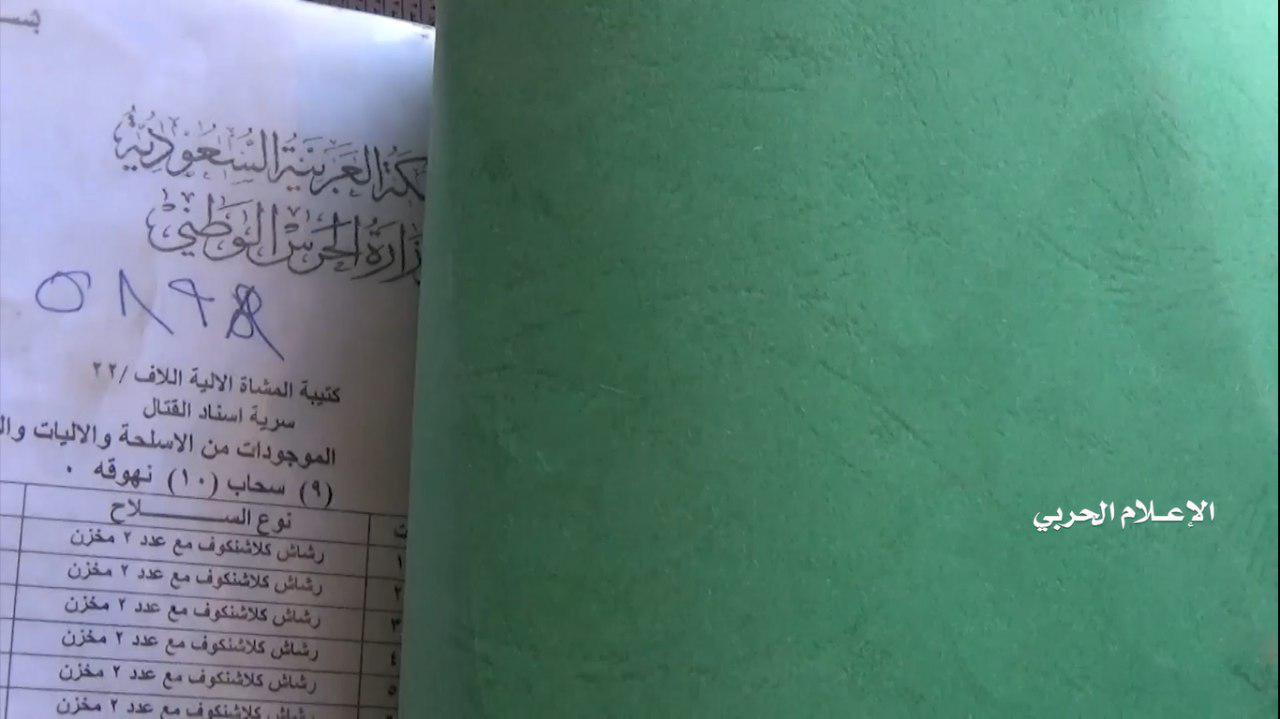 العربية السعودية
الحرس الوطني
كتيبة المشاة الالية اللاف /٢٢
سرية اسناد القتال
الموجودات من الاسلحة والاليات
(٩) سحاب (١٠) نهوقه ٠
نوع الســـــــــلاح
١ رشاش كلاشنكوف مع عدد ٢ مخزن
٢ رشاش كلاشنكوف مع عدد ٢ مخزن
٣ رشاش كلاشنكوف مع عدد ٢ مخزن
٤ رشاش كلاشنكوف مع عدد ٢ مخزن
٥ رشاش كلاشنكوف مع عدد ٢ مخزن
رشاش كلاشنكوف مع عدد ٢ مخزن
الإعـلام الحربي